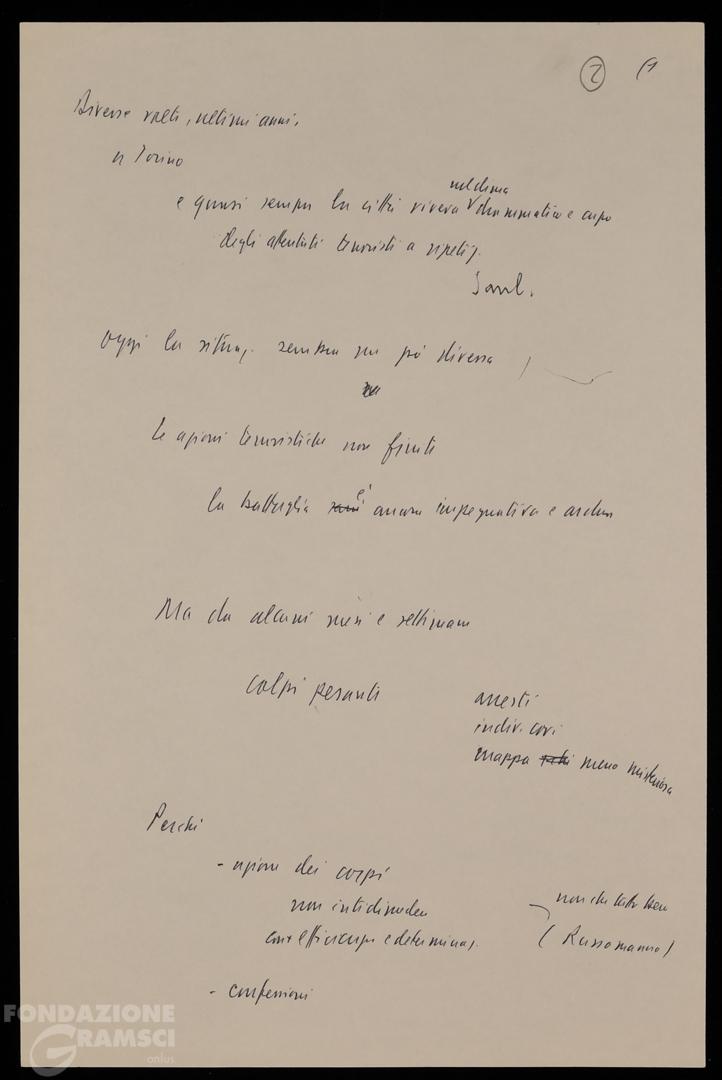 2 (1
Diverse volte, ultimi anni,
a Torino
nel clima
e quasi sempre la città viveva drammatico e cupo
degli attentati terroristi a ripetiz.
Oggi la situaz. sembra un po' diversa
le azioni terroristiche non finite
la battaglia è ancora impegnativa e ardua
Ma da alcuni mesi e settimane
colpi pesanti
arresti
indiv. covi
mappa meno misteriosa
Perché
- azione dei corpi
non
con efficienza e determinaz.
non da tutto
(Russomanno)
- confessioni
FONDAZIONE
GRAMSCI
onlus